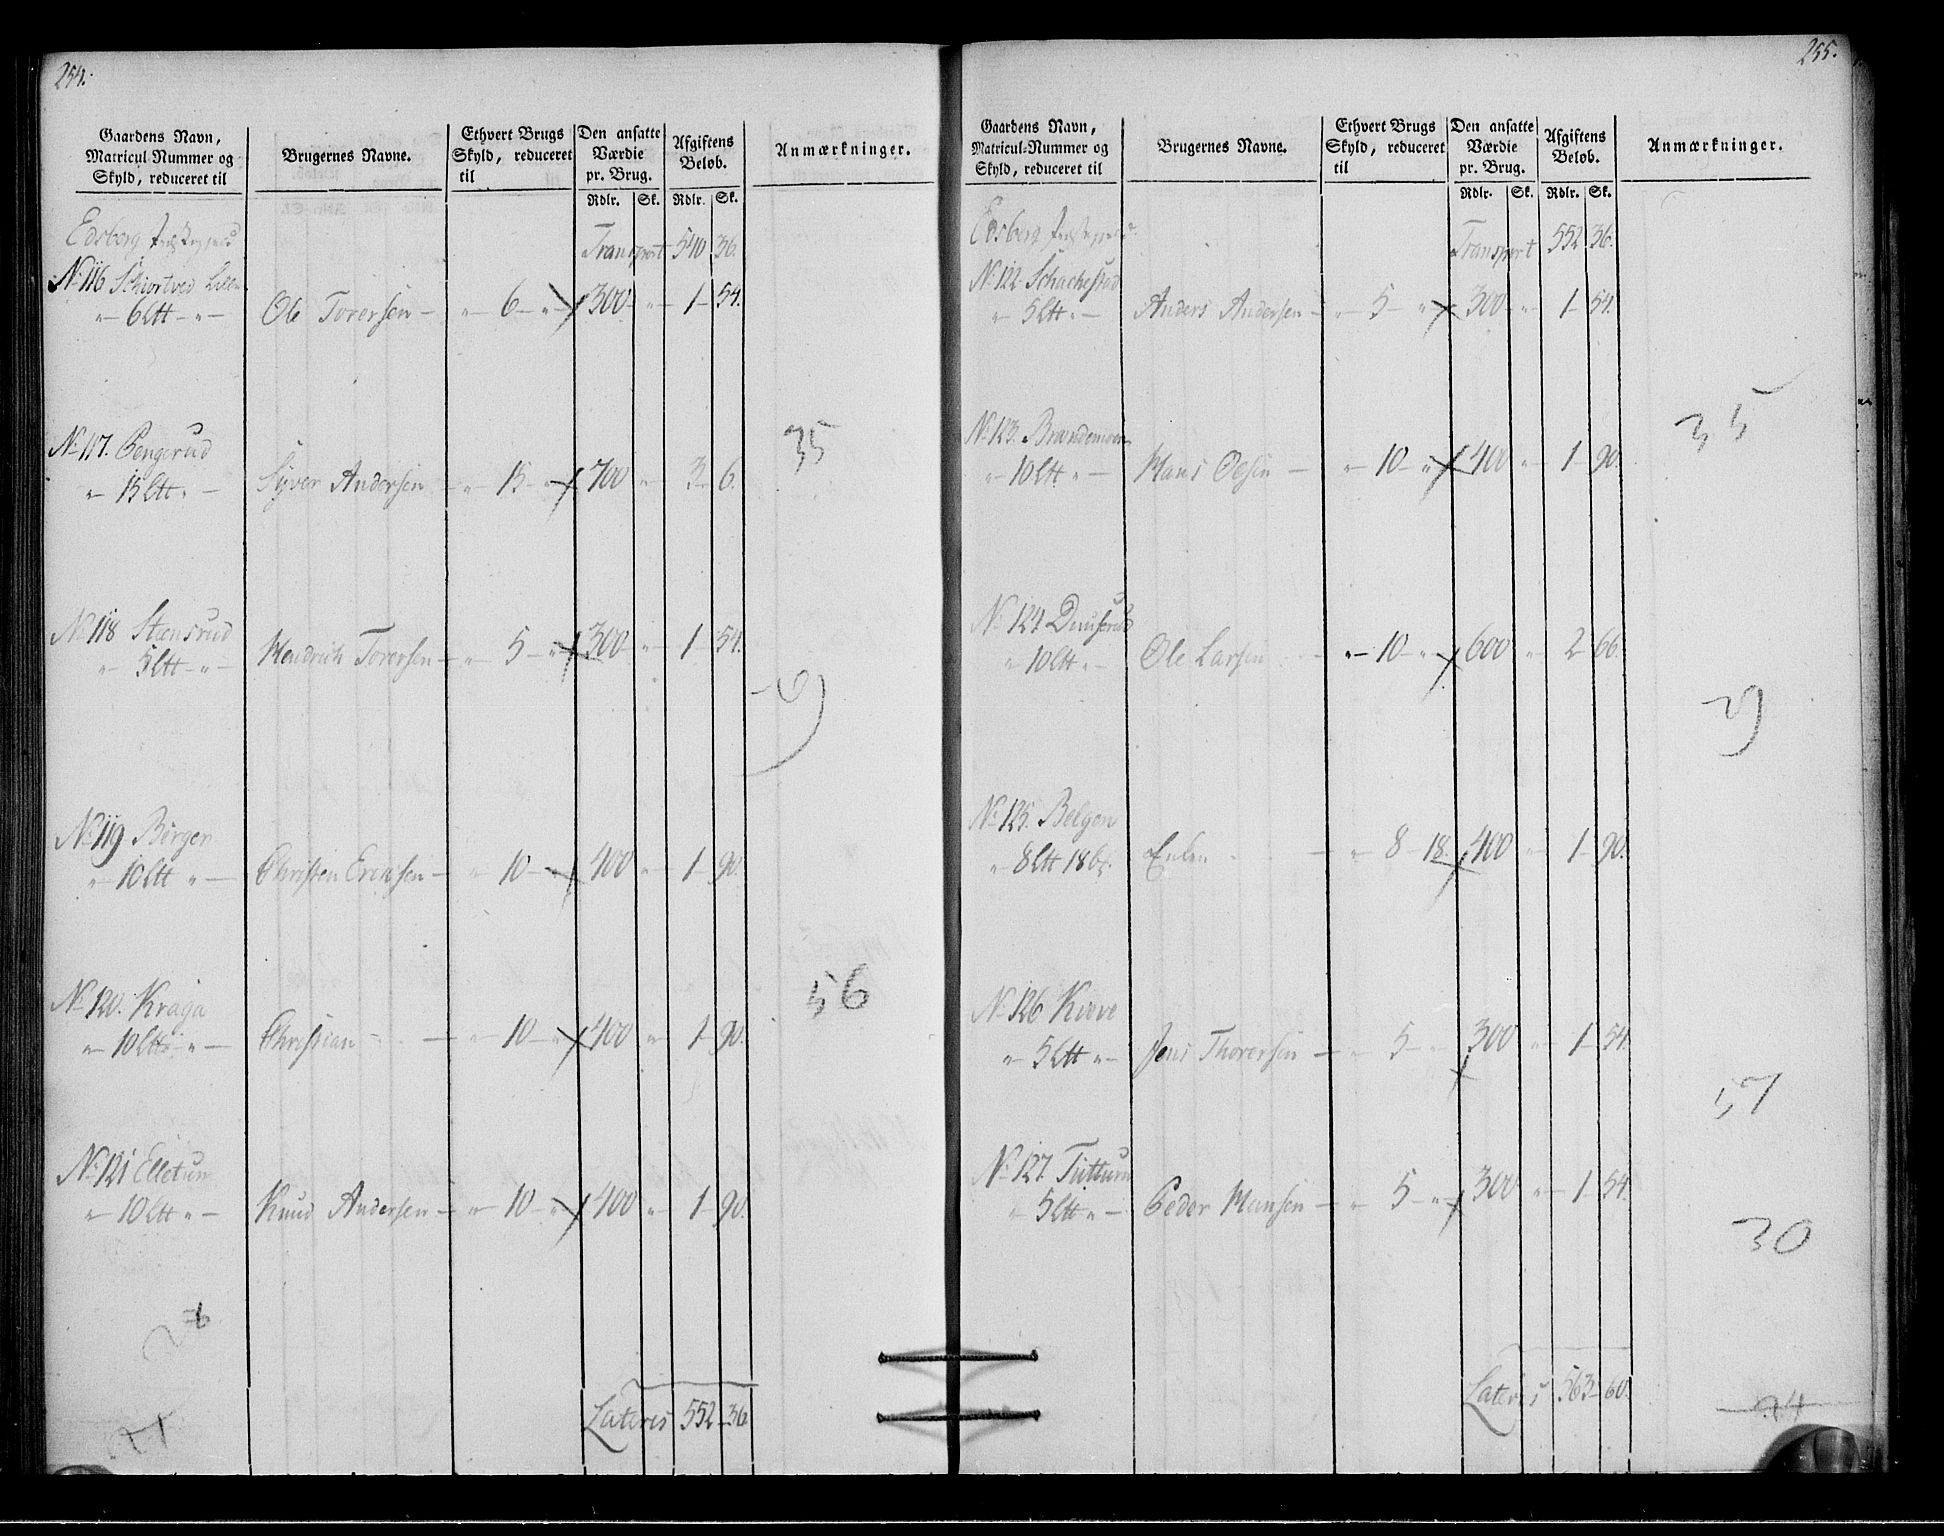 254.
Gaardens Navn, Matricul-Nummer og Skyld, reduceret til
Brugernes Navne.
Ethvert Brugs Skyld, reduceret til
Den ansatte Værdie pr. Brug.
Afgiftens Beløb.
Anmærkninger.
Rdlr. Sk. Rdlr. Sk.
Edsberg Præstegjeld Transport 540 36.
No 116 Schiortved Lille
" 6 Ltt " Ole Torersen " 6 " 300 " 1 54.
No 117. Pengerud
" 15 Ltt " Syver Andersen " 15 " 700 " 3 6.
35
No 118 Steensrud
" 5 Ltt " Hendrich Torersen " 5 " 300 " 1 54.
No 119 Berger
" 10 Ltt " Christen Erichsen " 10 " 400 " 1 90.
No 120. Kraga
" 10 Ltt " Christian " 10 " 400 " 1 90.
56
No 121 Elletun
" 10 Ltt " Knud Andersen " 10 " 400 " 1 90.
Lateris 552 36
255.
Gaardens Navn, Matricul-Nummer og Skyld, reduceret til
Brugernes Navne.
Ethvert Brugs Skyld, reduceret til
Den ansatte Værdie pr. Brug.
Afgiftens Beløb.
Anmærkninger.
Rdlr. Sk. Rdlr. Sk.
Edsberg Præstegjeld Transport 552 36.
No 122 Schachestad
" 5 Ltt " Anders Andersen " 5 " 300 " 1 54.
No 123. Brændemoen
" 10 Ltt " Hans Olsen " 10 " 400 " 1 90.
35
No 124 Duuserud
" 10 Ltt " Ole Larsen " 10 " 600 " 2 66.
29
No 125. Belgen
" 8 Ltt 18 Enken " 8 18 400 " 1 90.
No 126 Kvæve
" 5 Ltt " Jens Thorersen " 5 " 300 " 1 54.
57
No 127. Tutturn
" 5 Ltt " Peder Hansen " 5 " 300 " 1 54.
30
Lateris 563 60.